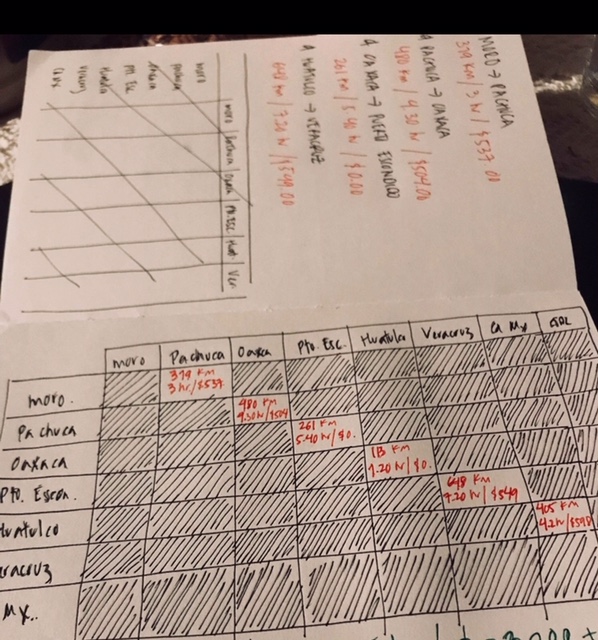 MORO → PACHUCA
379 Km / 3 hr / $537.00
A PACHUCA → OAXACA
480 Km / 4.30 hr / $504.00
A OAXACA → PUERTO ESCONDIDO
261 Km / 5.40 hr / $0.00
A HUATULCO → VERACRUZ
648 Km / 7.20 hr / $549.00
moro
Pachuca
Pto. Esc
Huatulco
moro Pachuca Oaxaca Pto. Esc. Huat. Ver.
moro Pachuca Oaxaca Pto. Esc. Huatulco Veracruz Cd Mx
moro. 379 Km
3 hr/$537.
Pachuca 480 Km
4.30 hr/$504
Oaxaca 261 Km
5.40 hr/$0.
Pto. Escon. 113 Km
1.20 hr/$0.
Huatulco 648 Km
7.20 hr/$549
eracruz 405 Km
Mx..